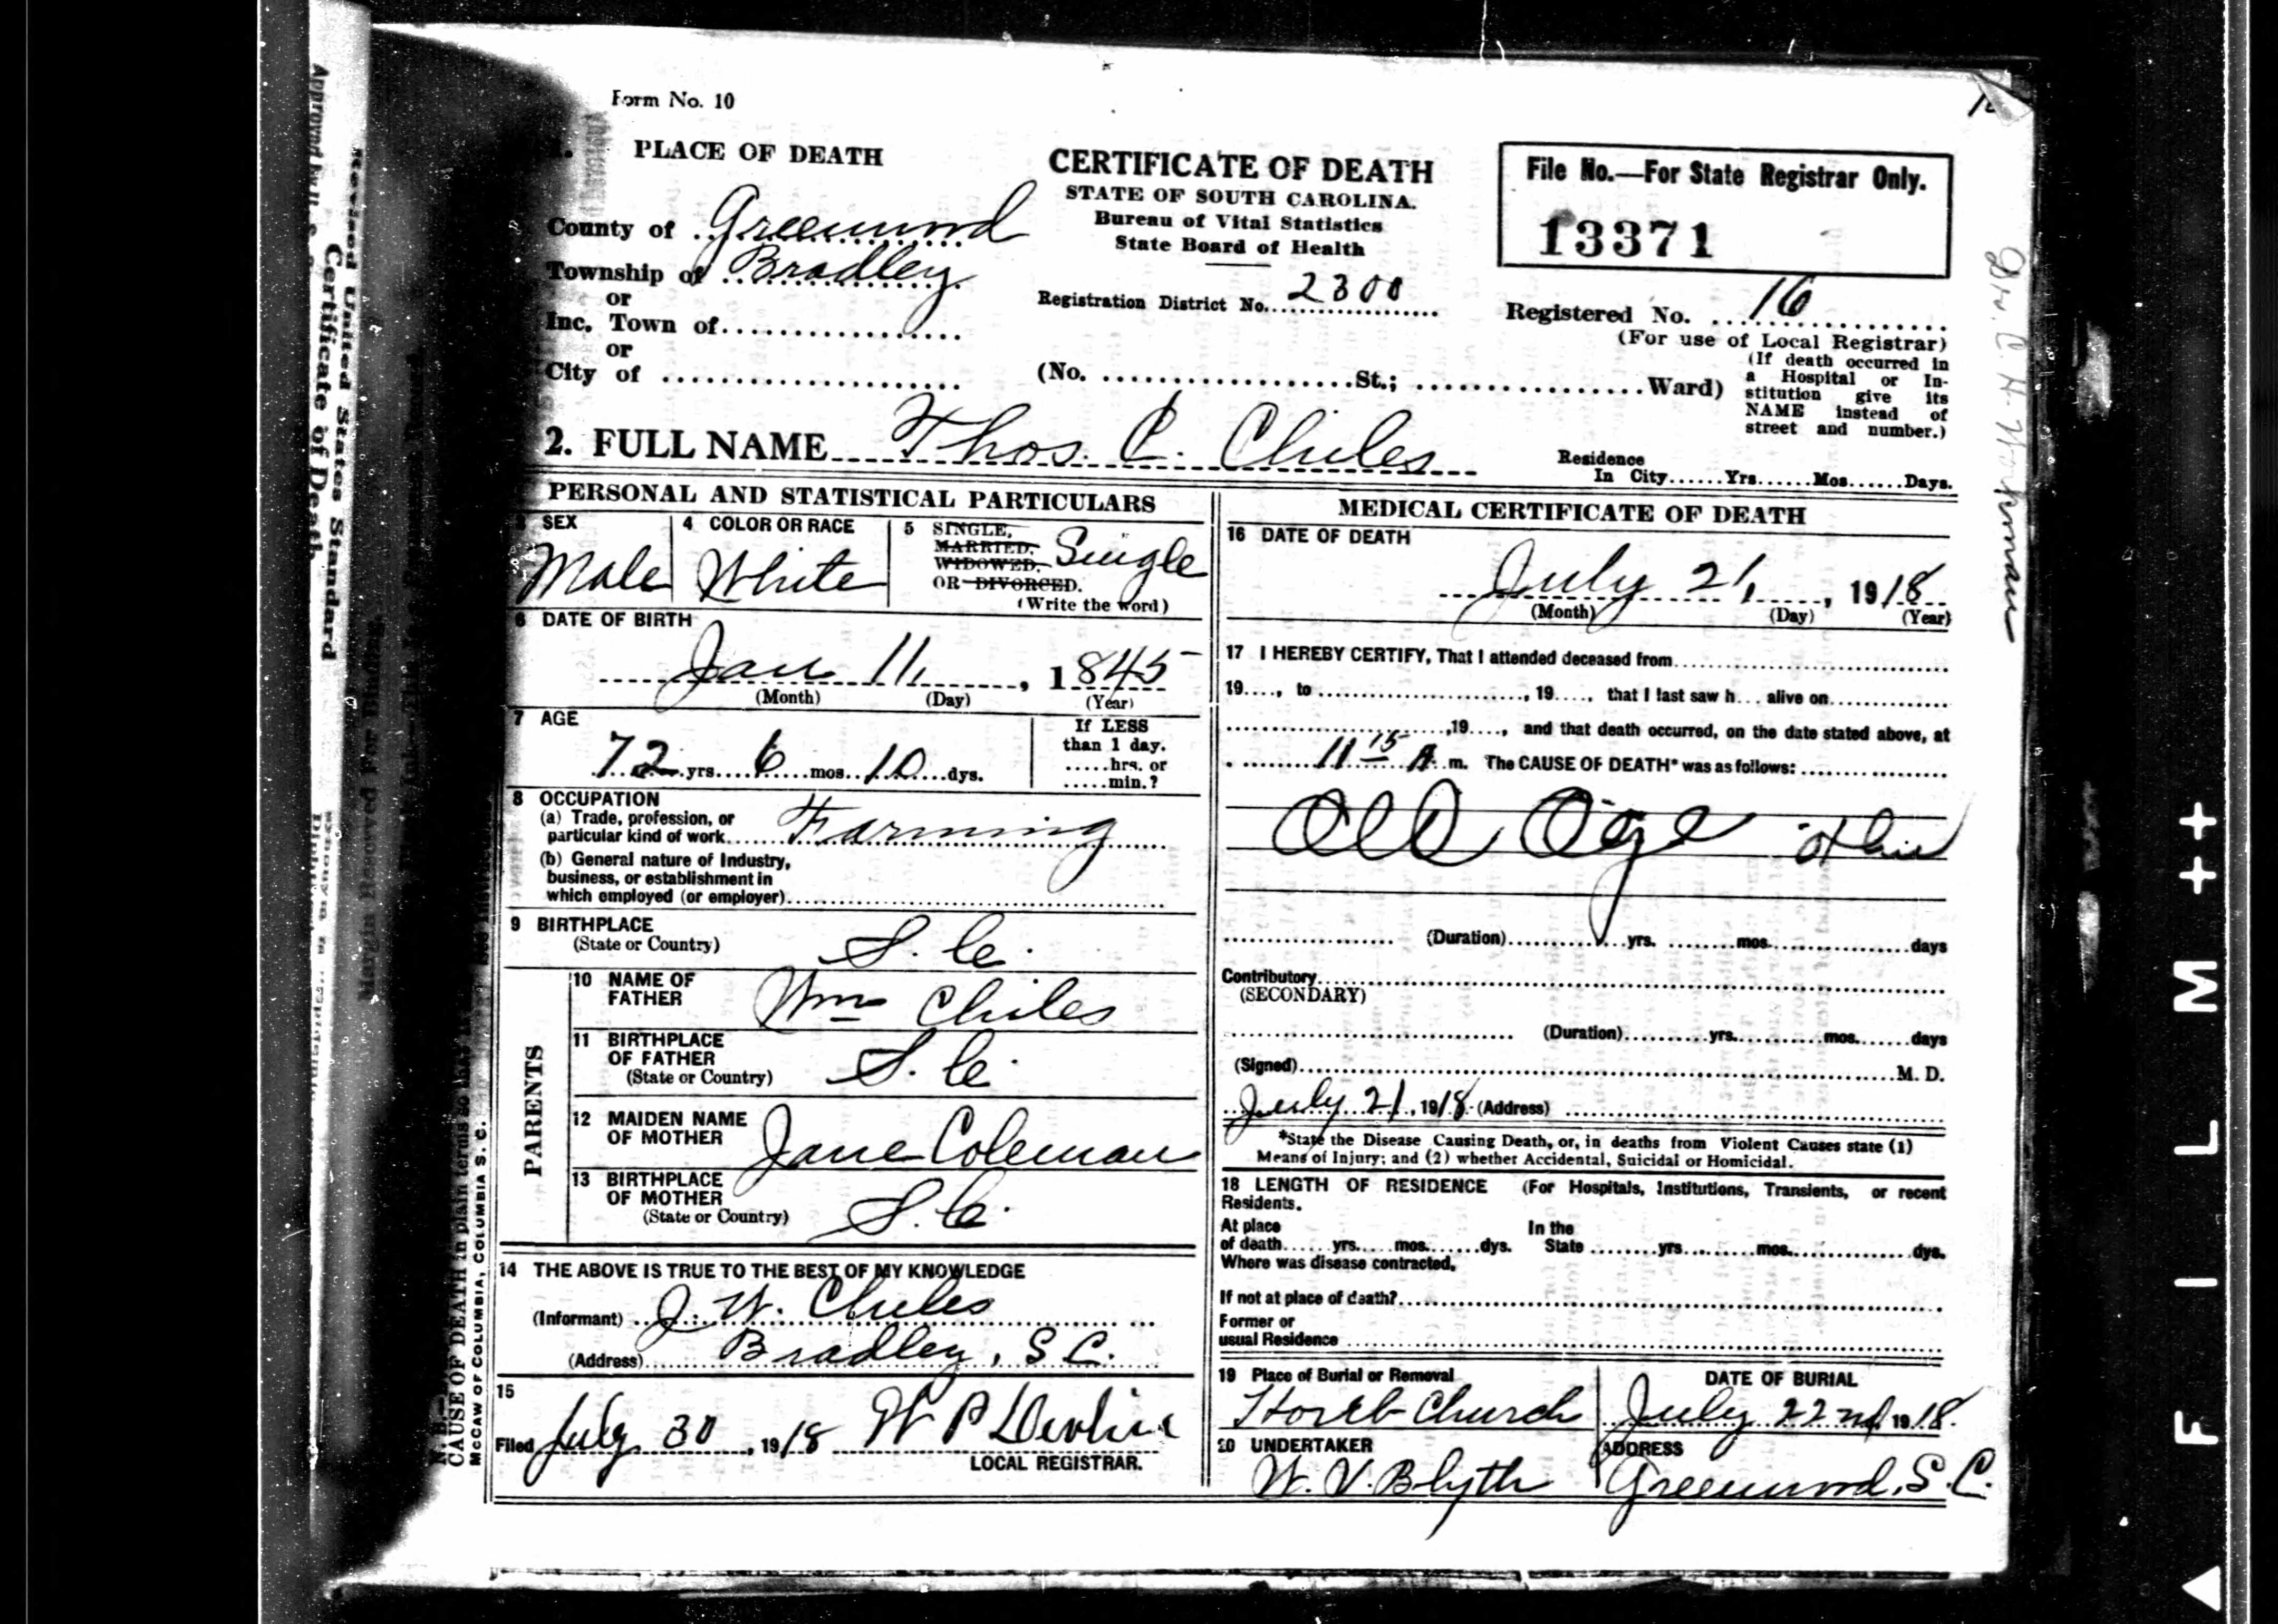 Form No. 10
1. PLACE OF DEATH
County of Greenwood
Township of Bradley
or
Inc. Town of
or
City of
CERTIFICATE OF DEATH
STATE OF SOUTH CAROLINA.
Bureau of Vital Statistics
State Board of Health
Registration District No. 2300
(No. St.; Ward)
File No.—For State Registrar Only.
13371
Registered No. 16
(For use of Local Registrar)
(If death occurred in
a Hospital or In-
stitution give its
NAME instead of
street and number.)
2. FULL NAME Thos. C. Chiles
Residence
In City......Yrs......Mos......Days.
PERSONAL AND STATISTICAL PARTICULARS
3 SEX
Male
4 COLOR OR RACE
White
5 SINGLE,
MARRIED,
WIDOWED,
OR DIVORCED.
(Write the word)
Single
6 DATE OF BIRTH
Jan 11, 1845
(Month) (Day) (Year)
7 AGE
72 yrs. 6 mos. 10 dys.
If LESS
than 1 day.
.....hrs. or
.....min.?
8 OCCUPATION
(a) Trade, profession, or
particular kind of work Farming
(b) General nature of Industry,
business, or establishment in
which employed (or employer)
9 BIRTHPLACE
(State or Country) S. C.
PARENTS
10 NAME OF
FATHER Wm Chiles
11 BIRTHPLACE
OF FATHER
(State or Country) S. C.
12 MAIDEN NAME
OF MOTHER Jane Coleman
13 BIRTHPLACE
OF MOTHER
(State or Country) S. C.
14 THE ABOVE IS TRUE TO THE BEST OF MY KNOWLEDGE
(Informant) J. W. Chiles
(Address) Bradley, S C.
15
Filed July 30, 1918 W P Devlin
LOCAL REGISTRAR.
MEDICAL CERTIFICATE OF DEATH
16 DATE OF DEATH
July 21, 1918
(Month) (Day) (Year)
17 I HEREBY CERTIFY, That I attended deceased from
19...., to , 19...., that I last saw h... alive on
,19...., and that death occurred, on the date stated above, at
11 15 A. m. The CAUSE OF DEATH* was as follows:
Old Age
(Duration) yrs. mos. days
Contributory
(SECONDARY)
(Duration) yrs. mos. days
(Signed) M. D.
July 21, 1918 (Address)
*State the Disease Causing Death, or, in deaths from Violent Causes state (1)
Means of Injury; and (2) whether Accidental, Suicidal or Homicidal.
18 LENGTH OF RESIDENCE (For Hospitals, Institutions, Transients, or recent
Residents.
At place In the
of death......yrs.....mos.......dys. State ........yrs........mos..............dys.
Where was disease contracted,
If not at place of death?
Former or
usual Residence
19 Place of Burial or Removal
Horeb Church
DATE OF BURIAL
July 22nd, 1918.
20 UNDERTAKER
W. V. Blyth
ADDRESS
Greenwood, S. C.
Revised United States Standard
Certificate of Death
Margin Reserved For Binding.
CAUSE OF DEATH in plain terms so
McCAW OF COLUMBIA, COLUMBIA S. C.
FILM ++